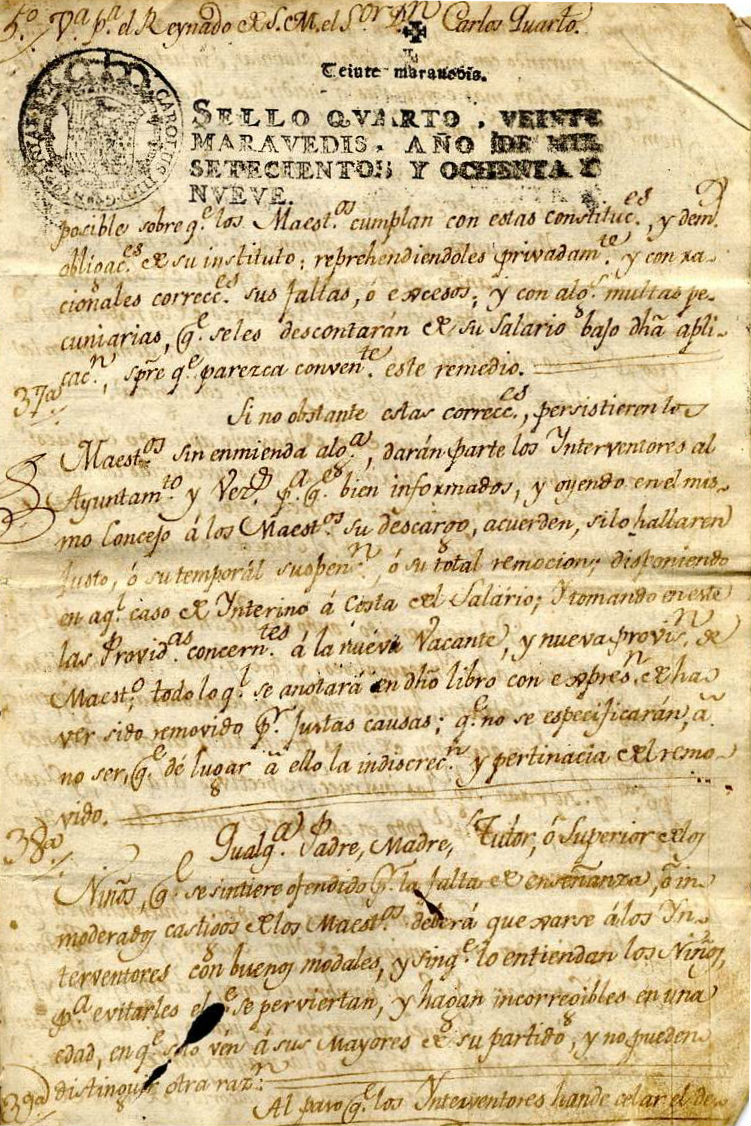 5.º V.ª p.ª el Reynado de S. M. el S.ºr D.n Carlos Quarto.
Veinte maravedis.
SELLO QVARTO, VEINTE
MARAVEDIS, AÑO DE MIL
SETECIENTOS Y OCHENTA Y
NVEVE.
CAROLUS
posible sobre q.e los Maest.os cumplan con estas constituc.es, y dem.
obligac.es de su instituto; reprehendiendoles privadam.te y con ra-
cionales correcc.es sus faltas, ó excesos; y con alg.s multas pe-
cuniarias, q.e seles descontarán de su salario bajo dha apli-
cac.n, spre q.e parezca conven.te este remedio.
37ª
Si no obstante estas correcc.es, persistieren los
Maest.os sin enmienda alg.a, darán parte los Interventores al
Ayuntam.to y Vez.d p.a q.e bien informados, y oyendo en el mis-
mo Concejo á los Maest.os su descargo, acuerden, silo hallaren
Justo, ó su temporál suspen.n, ó su total remocion; disponiendo
en aq.l caso de Interino á Costa del Salário; Y tomando en este
las Provid.as concern.tes á la nueva Vacante, y nueva provis.n de
Maest.o todo lo q.l se anotará en dho libro con expres.n de ha
ver sido removido p.r Justas causas; q.e no se especificarán, á
no ser, q.e dé lugar á ello la indiscrec.n y pertinacia del remo-
vido.
38ª
Qualq.a Padre, Madre, Tutor, ó Superior delos
Niños, q.e se sintiere ofendido p.r la falta de enseñanza, ó in-
moderados castigos delos Maest.os deberá quexarse álos Yn-
terventores con buenos modales, y sinq.e lo entiendan los Niños,
p.a evitarles el q.e se perviertan, y hagan incorregibles en una
edad, en q.e solo vén á sus Mayores de su partido, y no pueden
distinguir otra raz.n:
39ª
Al paso q.e los Interventores hande celar el de-